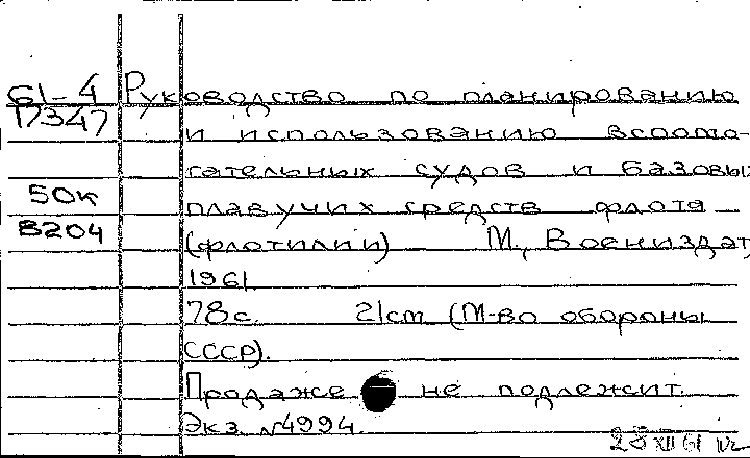 61-4 Руководство по планированию
17347 и использованию вспома-
гательных судов и базовых
50к плавучих средств флота
8204 (флотилии) М., Воениздат,
1961.
78с. 21см (М-во обороны
СССР).
Продаже не подлежит.
Экз. №4994
28 XII 61